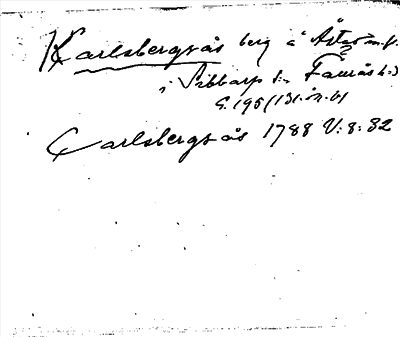 Karlsbergsås berg å Åstad m.fl.
i Sibbarp sn Faurås hd
S. 195 (131. ön. b)
Carlsbergs ås 1788 V: 8: 32